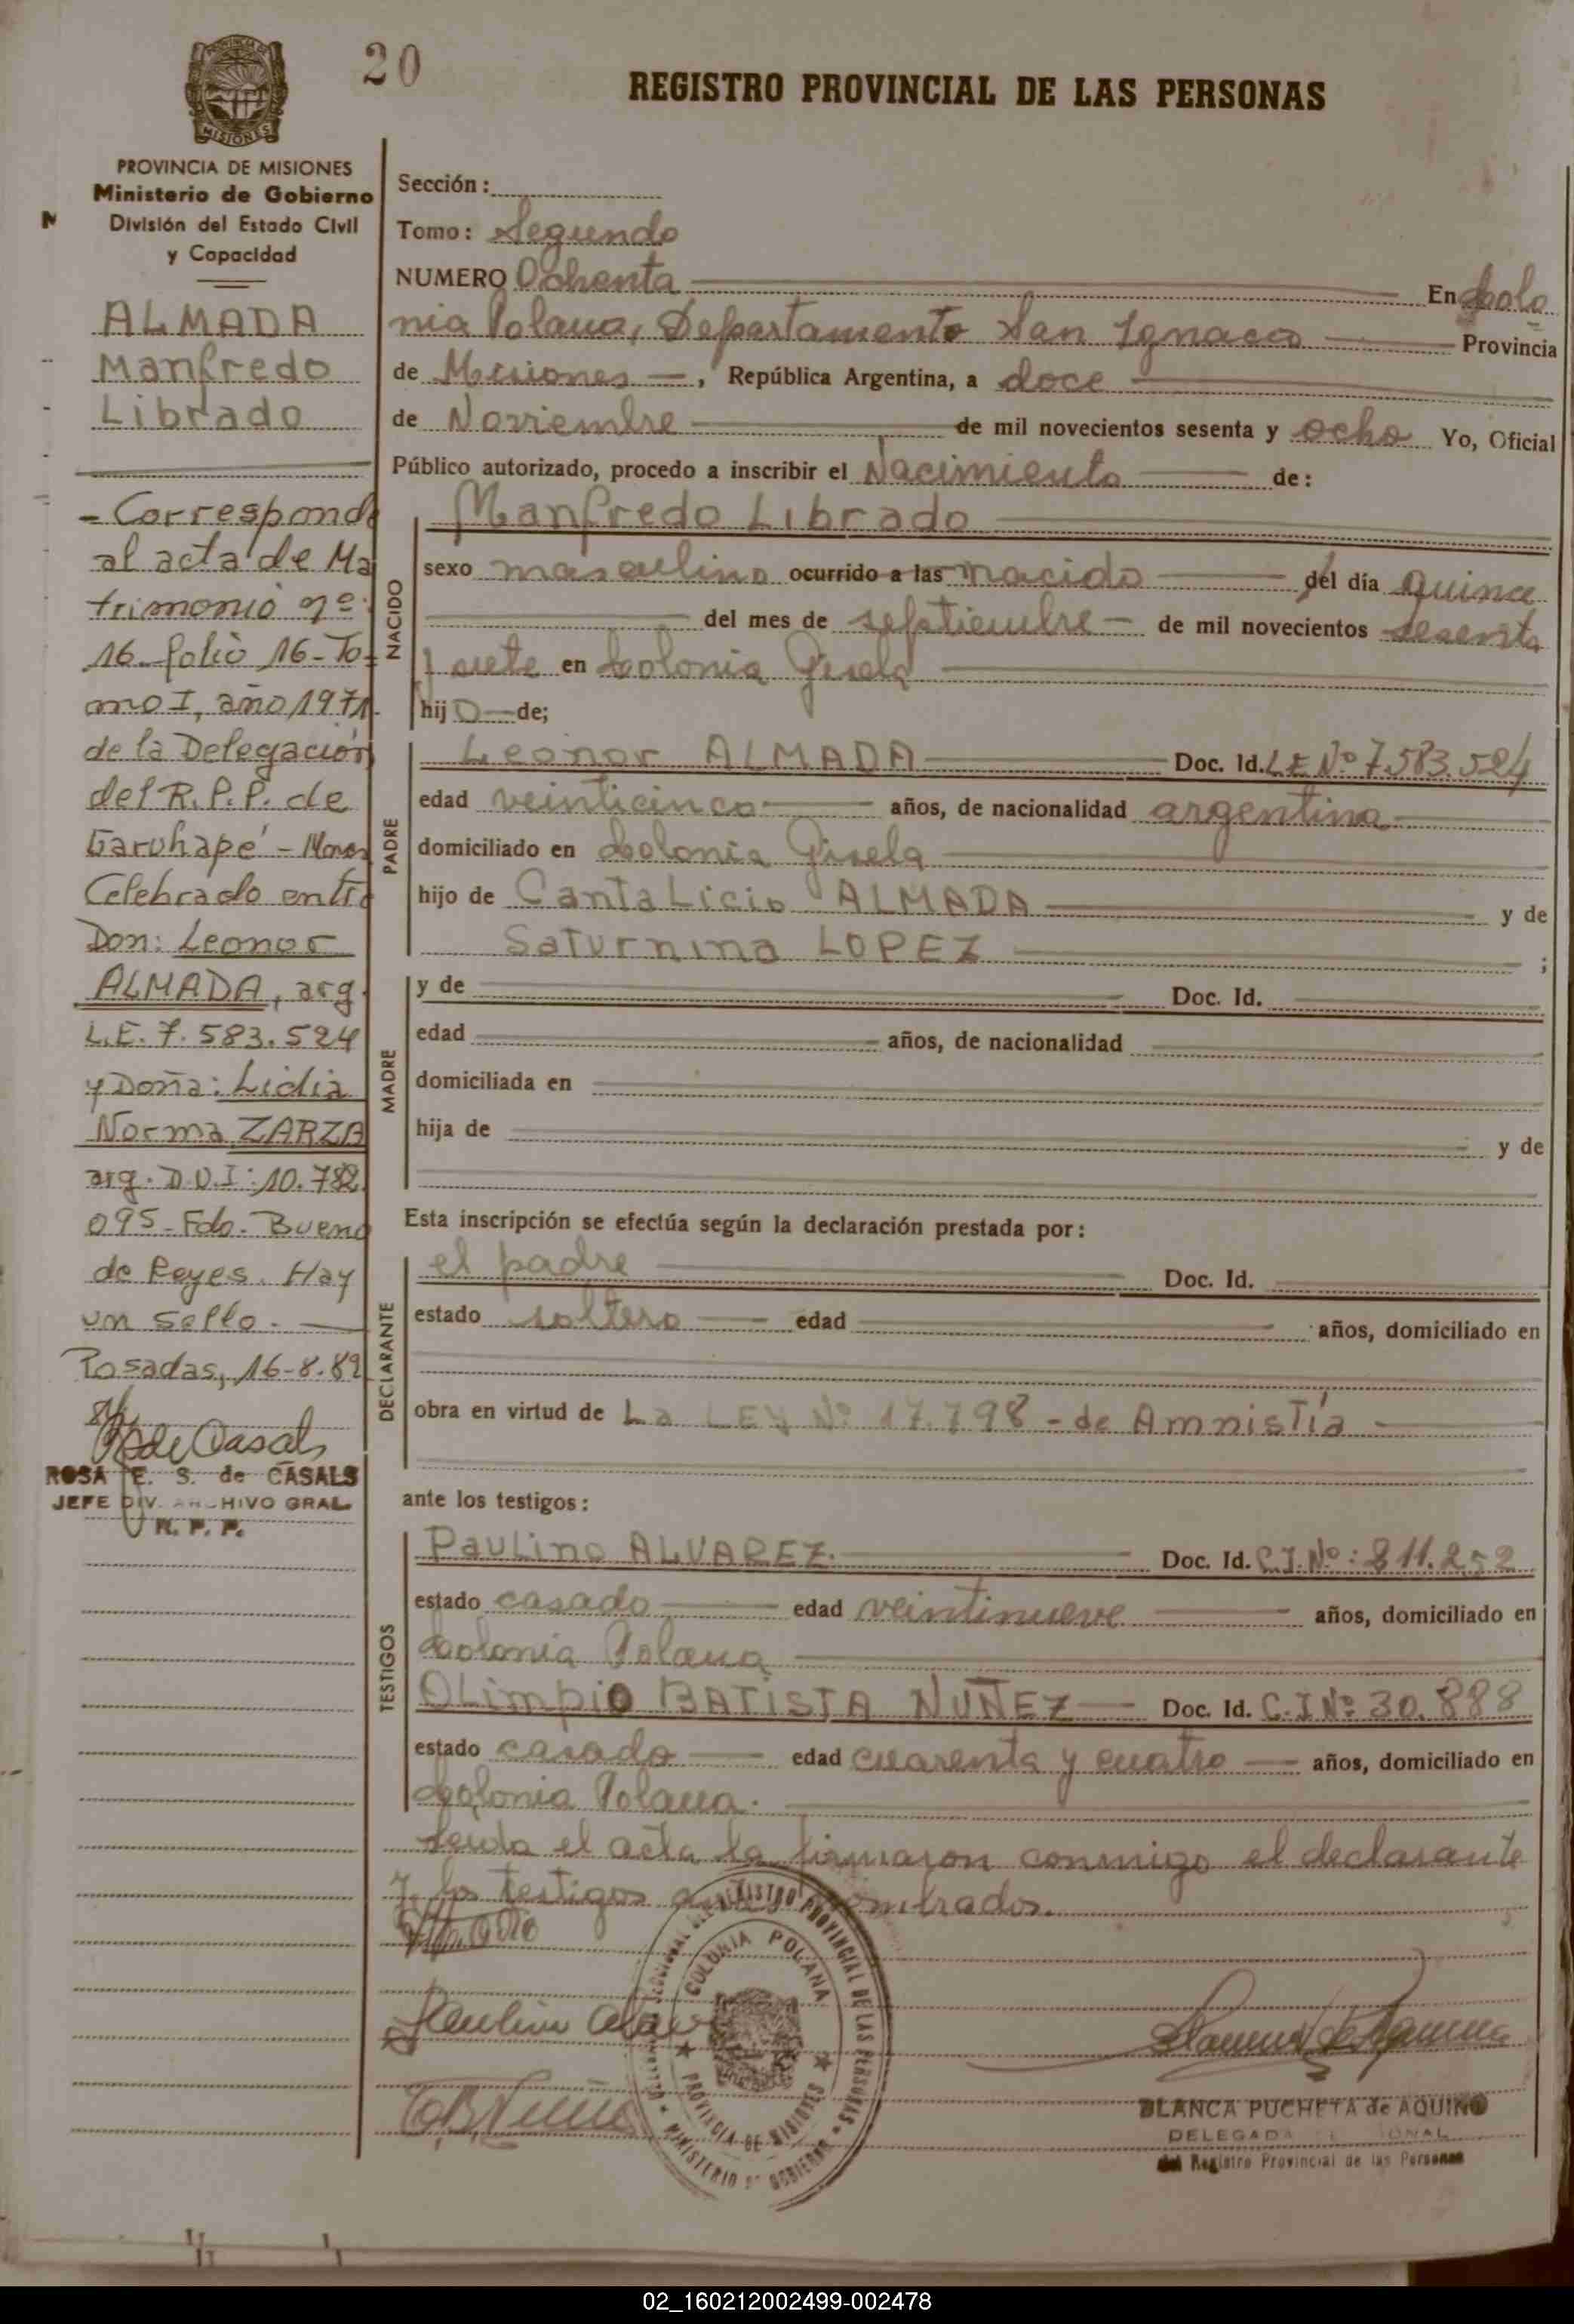 20
REGISTRO PROVINCIAL DE LAS PERSONAS
PROVINCIA DE MISIONES
Ministerio de Gobierno
División del Estado Civil
y Capacidad
ALMADA
Manfredo
Librado
- Corresponde
al acta de Ma
trimonio nº:
16. folio 16-To-
mo I, año 1971.
de la Delegación
del R.P.P. de
Garuhapé - Mnes
Celebrado entre
Don: Leonor
ALMADA, arg.
L.E. 7.583.524
y Doña: Lidia
Norma ZARZA
arg. D.N.I: 10.782.
095- Fdo. Bueno
de Reyes. Hay
un sello.
Posadas, 16-8-89
ROSA E. S. de CASALS
JEFE DIV. ARCHIVO GRAL.
R. P. P.
Sección:
Tomo: Segundo
NUMERO Ochenta En Colo
nia Polana, Departamento San Ignacio Provincia
de Misiones -, República Argentina, a doce
de Noviembre de mil novecientos sesenta y ocho Yo, Oficial
Público autorizado, procedo a inscribir el Nacimiento de:
Manfredo Librado
NACIDO
sexo masculino ocurrido a las nacido del día quince
del mes de septiembre - de mil novecientos sesenta
y siete en Colonia Gisela
hijo de;
PADRE
Leonor ALMADA Doc. Id. L E Nº 7.583.524
edad veinticinco años, de nacionalidad argentina
domiciliado en Colonia Gisela
hijo de CantaLicio ALMADA y de
Saturnina LOPEZ ;
MADRE
y de Doc. Id.
edad años, de nacionalidad
domiciliada en
hija de y de
Esta inscripción se efectúa según la declaración prestada por:
DECLARANTE
el padre Doc. Id.
estado soltero edad años, domiciliado en
obra en virtud de La LEY Nº 17.798 - de Amnistía
ante los testigos:
TESTIGOS
Paulino ALVAREZ. Doc. Id. C.I. Nº: 811.252
estado casado edad veintinueve años, domiciliado en
Colonia Polana
OLimpio BATISTA NUÑEZ Doc. Id. C.I Nº 30.888
estado casado edad cuarenta y cuatro años, domiciliado en
Colonia Polana.
Leida el acta la firmaron conmigo el declarante
y los testigos
REGISTRO PROVINCIAL DE LAS PERSONAS
COLONIA POLANA
PROVINCIA DE MISIONES
MINISTERIO DE GOBIERNO
BLANCA PUCHETA de AQUINO
DELEGADA
del Registro Provincial de las Personas
02_160212002499-002478